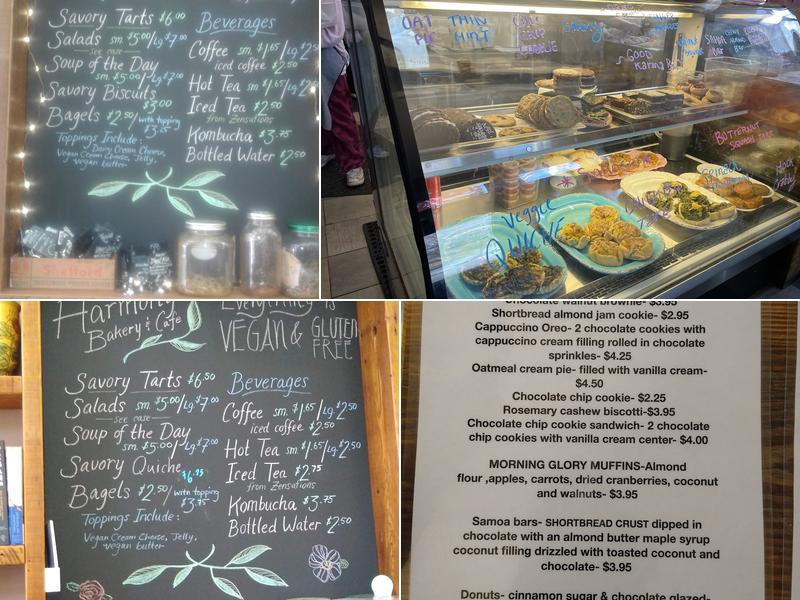 Savory Tarts $6.00
Salads sm. $5.00/Lg. $7.00
see case
Soup of the Day
sm. $5.00/Lg. $7.00
Savory Biscuits
$3.00
Bagels $2.50/with topping
$3.75
Toppings Include:
Dairy Cream Cheese,
Vegan Cream Cheese, Jelly,
vegan butter
Beverages
Coffee sm. $1.65/Lg. $2.50
iced coffee $2.50
Hot Tea sm. $1.65/Lg.
Iced Tea $2.50
from Zensations
Kombucha $3.75
Bottled Water $2.50
OAT
PIE
THIN
MINT
CHOC
CHIP
COOKIE
Savory
GOOD
Karma Bar
BUTTERNUT
SQUASH TART
Veggie
QUICHE
Spinach
Harmony
Bakery & Cafe
Everything is
VEGAN & GLUTEN
FREE
Savory Tarts $6.50
Salads sm. $5.00/Lg. $7.00
see case
Soup of the Day
sm. $5.00/Lg. $7.00
Savory Quiche
$6.95
Bagels $2.50/with topping
$3.75
Toppings Include:
Vegan Cream Cheese, Jelly,
vegan butter
Beverages
Coffee sm. $1.65/Lg. $2.50
iced coffee $2.50
Hot Tea sm. $1.65/Lg. $2.50
Iced Tea $2.75
from Zensations
Kombucha $3.75
Bottled Water $2.50
Chocolate walnut brownie- $3.95
Shortbread almond jam cookie- $2.95
Cappuccino Oreo- 2 chocolate cookies with
cappuccino cream filling rolled in chocolate
sprinkles- $4.25
Oatmeal cream pie- filled with vanilla cream-
$4.50
Chocolate chip cookie- $2.25
Rosemary cashew biscotti-$3.95
Chocolate chip cookie sandwich- 2 chocolate
chip cookies with vanilla cream center- $4.00
MORNING GLORY MUFFINS-Almond
flour ,apples, carrots, dried cranberries, coconut
and walnuts- $3.95
Samoa bars- SHORTBREAD CRUST dipped in
chocolate with an almond butter maple syrup
coconut filling drizzled with toasted coconut and
chocolate- $3.95
Donuts- cinnamon sugar & chocolate glazed-